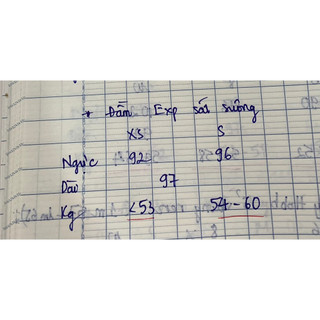 * Đầm Exp sát suông
XS S
Ngực 92 96
Dài 97
Kg <53 54-60